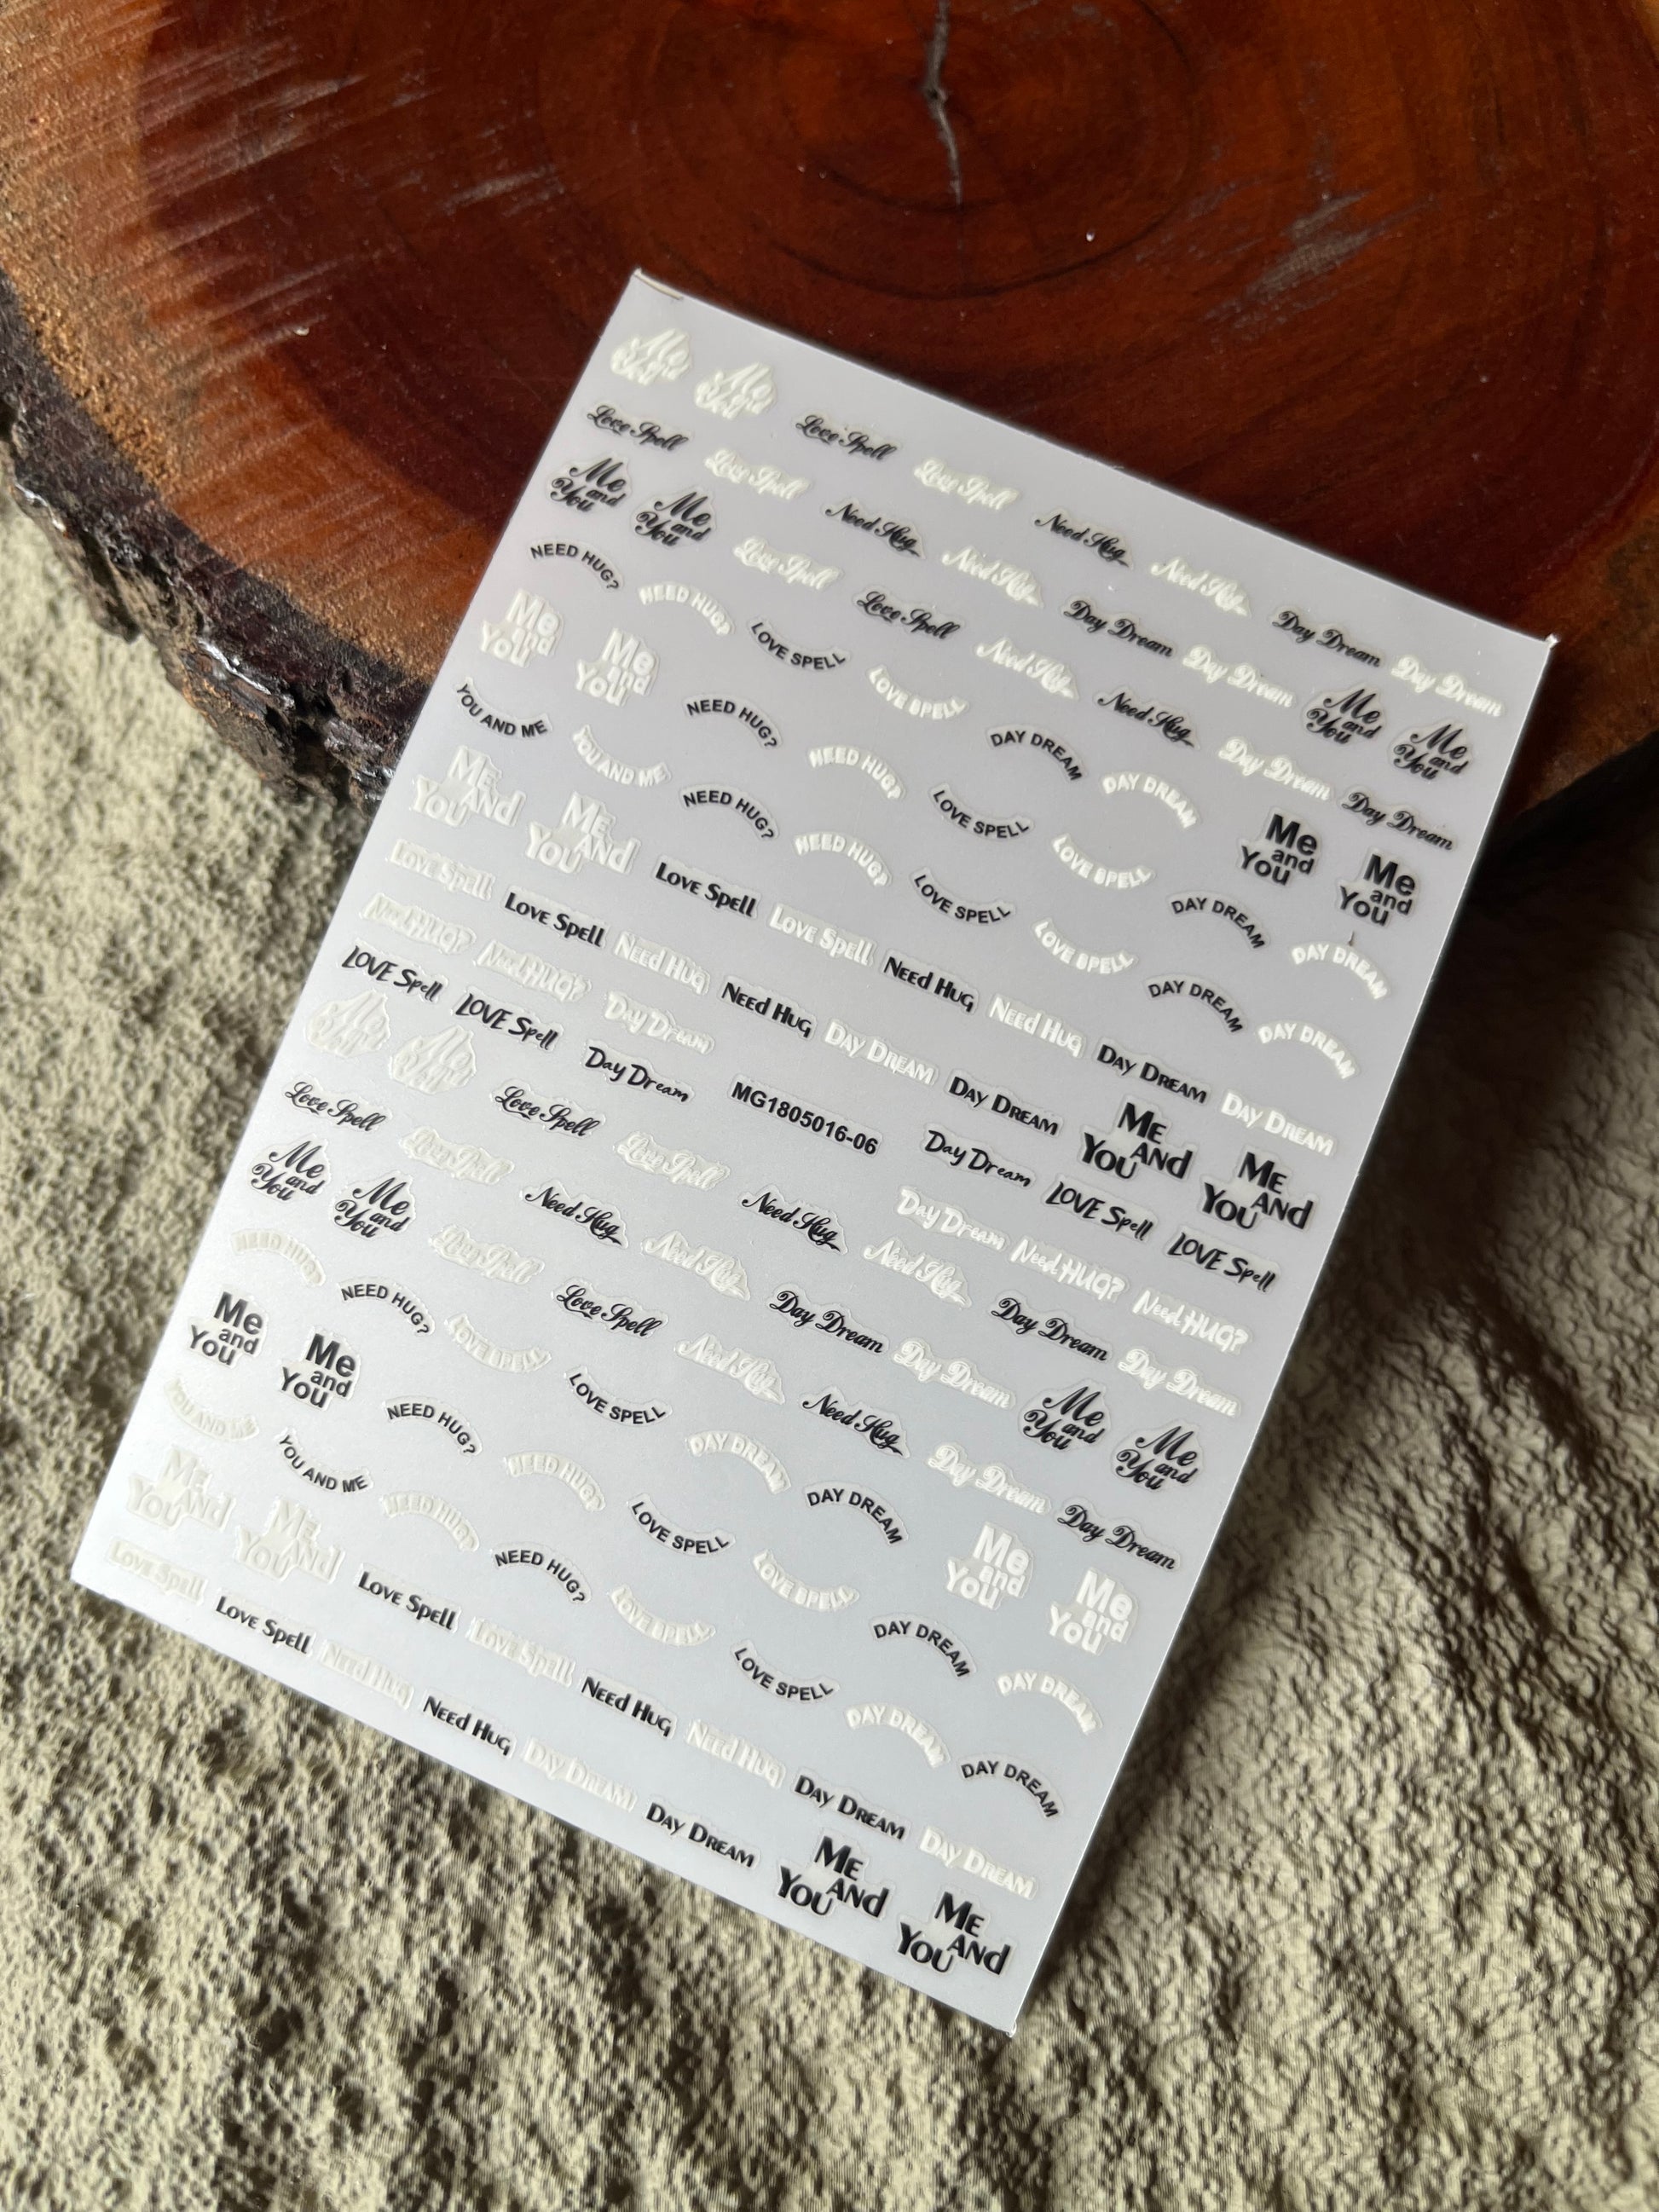 Me and You Me and You Love Spell Love Spell Need Hug Need Hug Day Dream Day Dream
Love Spell Love Spell Need Hug Need Hug Day Dream Day Dream Me and You Me and You
Me and You Me and You Love Spell Love Spell Need Hug Need Hug Day Dream Day Dream
NEED HUG? NEED HUG? LOVE SPELL LOVE SPELL DAY DREAM DAY DREAM Me and You Me and You
Me and You Me and You NEED HUG? NEED HUG? LOVE SPELL LOVE SPELL DAY DREAM DAY DREAM
YOU AND ME YOU AND ME NEED HUG? NEED HUG? LOVE SPELL LOVE SPELL DAY DREAM DAY DREAM
ME ANd YOU ME ANd YOU LOVE SpEll LOVE SpEll NEEd HUG NEEd HUG DAY DREAM DAY DREAM
LOVE SpEll LOVE SpEll NEEd HUG NEEd HUG DAY DREAM DAY DREAM ME ANd YOU ME ANd YOU
Need HUG? Need HUG? Day Dream Day Dream LOVE Spell LOVE Spell
LOVE Spell LOVE Spell Day Dream MG1805016-06 Day Dream Need HUG? Need HUG?
Me and You Me and You Love Spell Love Spell Need Hug Need Hug Day Dream Day Dream
Love Spell Love Spell Need Hug Need Hug Day Dream Day Dream Me and You Me and You
Me and You Me and You Love Spell Love Spell Need Hug Need Hug Day Dream Day Dream
NEED HUG? NEED HUG? LOVE SPELL LOVE SPELL DAY DREAM DAY DREAM Me and You Me and You
Me and You Me and You NEED HUG? NEED HUG? LOVE SPELL LOVE SPELL DAY DREAM DAY DREAM
YOU AND ME YOU AND ME NEED HUG? NEED HUG? LOVE SPELL LOVE SPELL DAY DREAM DAY DREAM
ME ANd YOU ME ANd YOU LOVE SpEll LOVE SpEll NEEd HUG NEEd HUG DAY DREAM DAY DREAM
LOVE SpEll LOVE SpEll NEEd HUG NEEd HUG DAY DREAM DAY DREAM ME ANd YOU ME ANd YOU